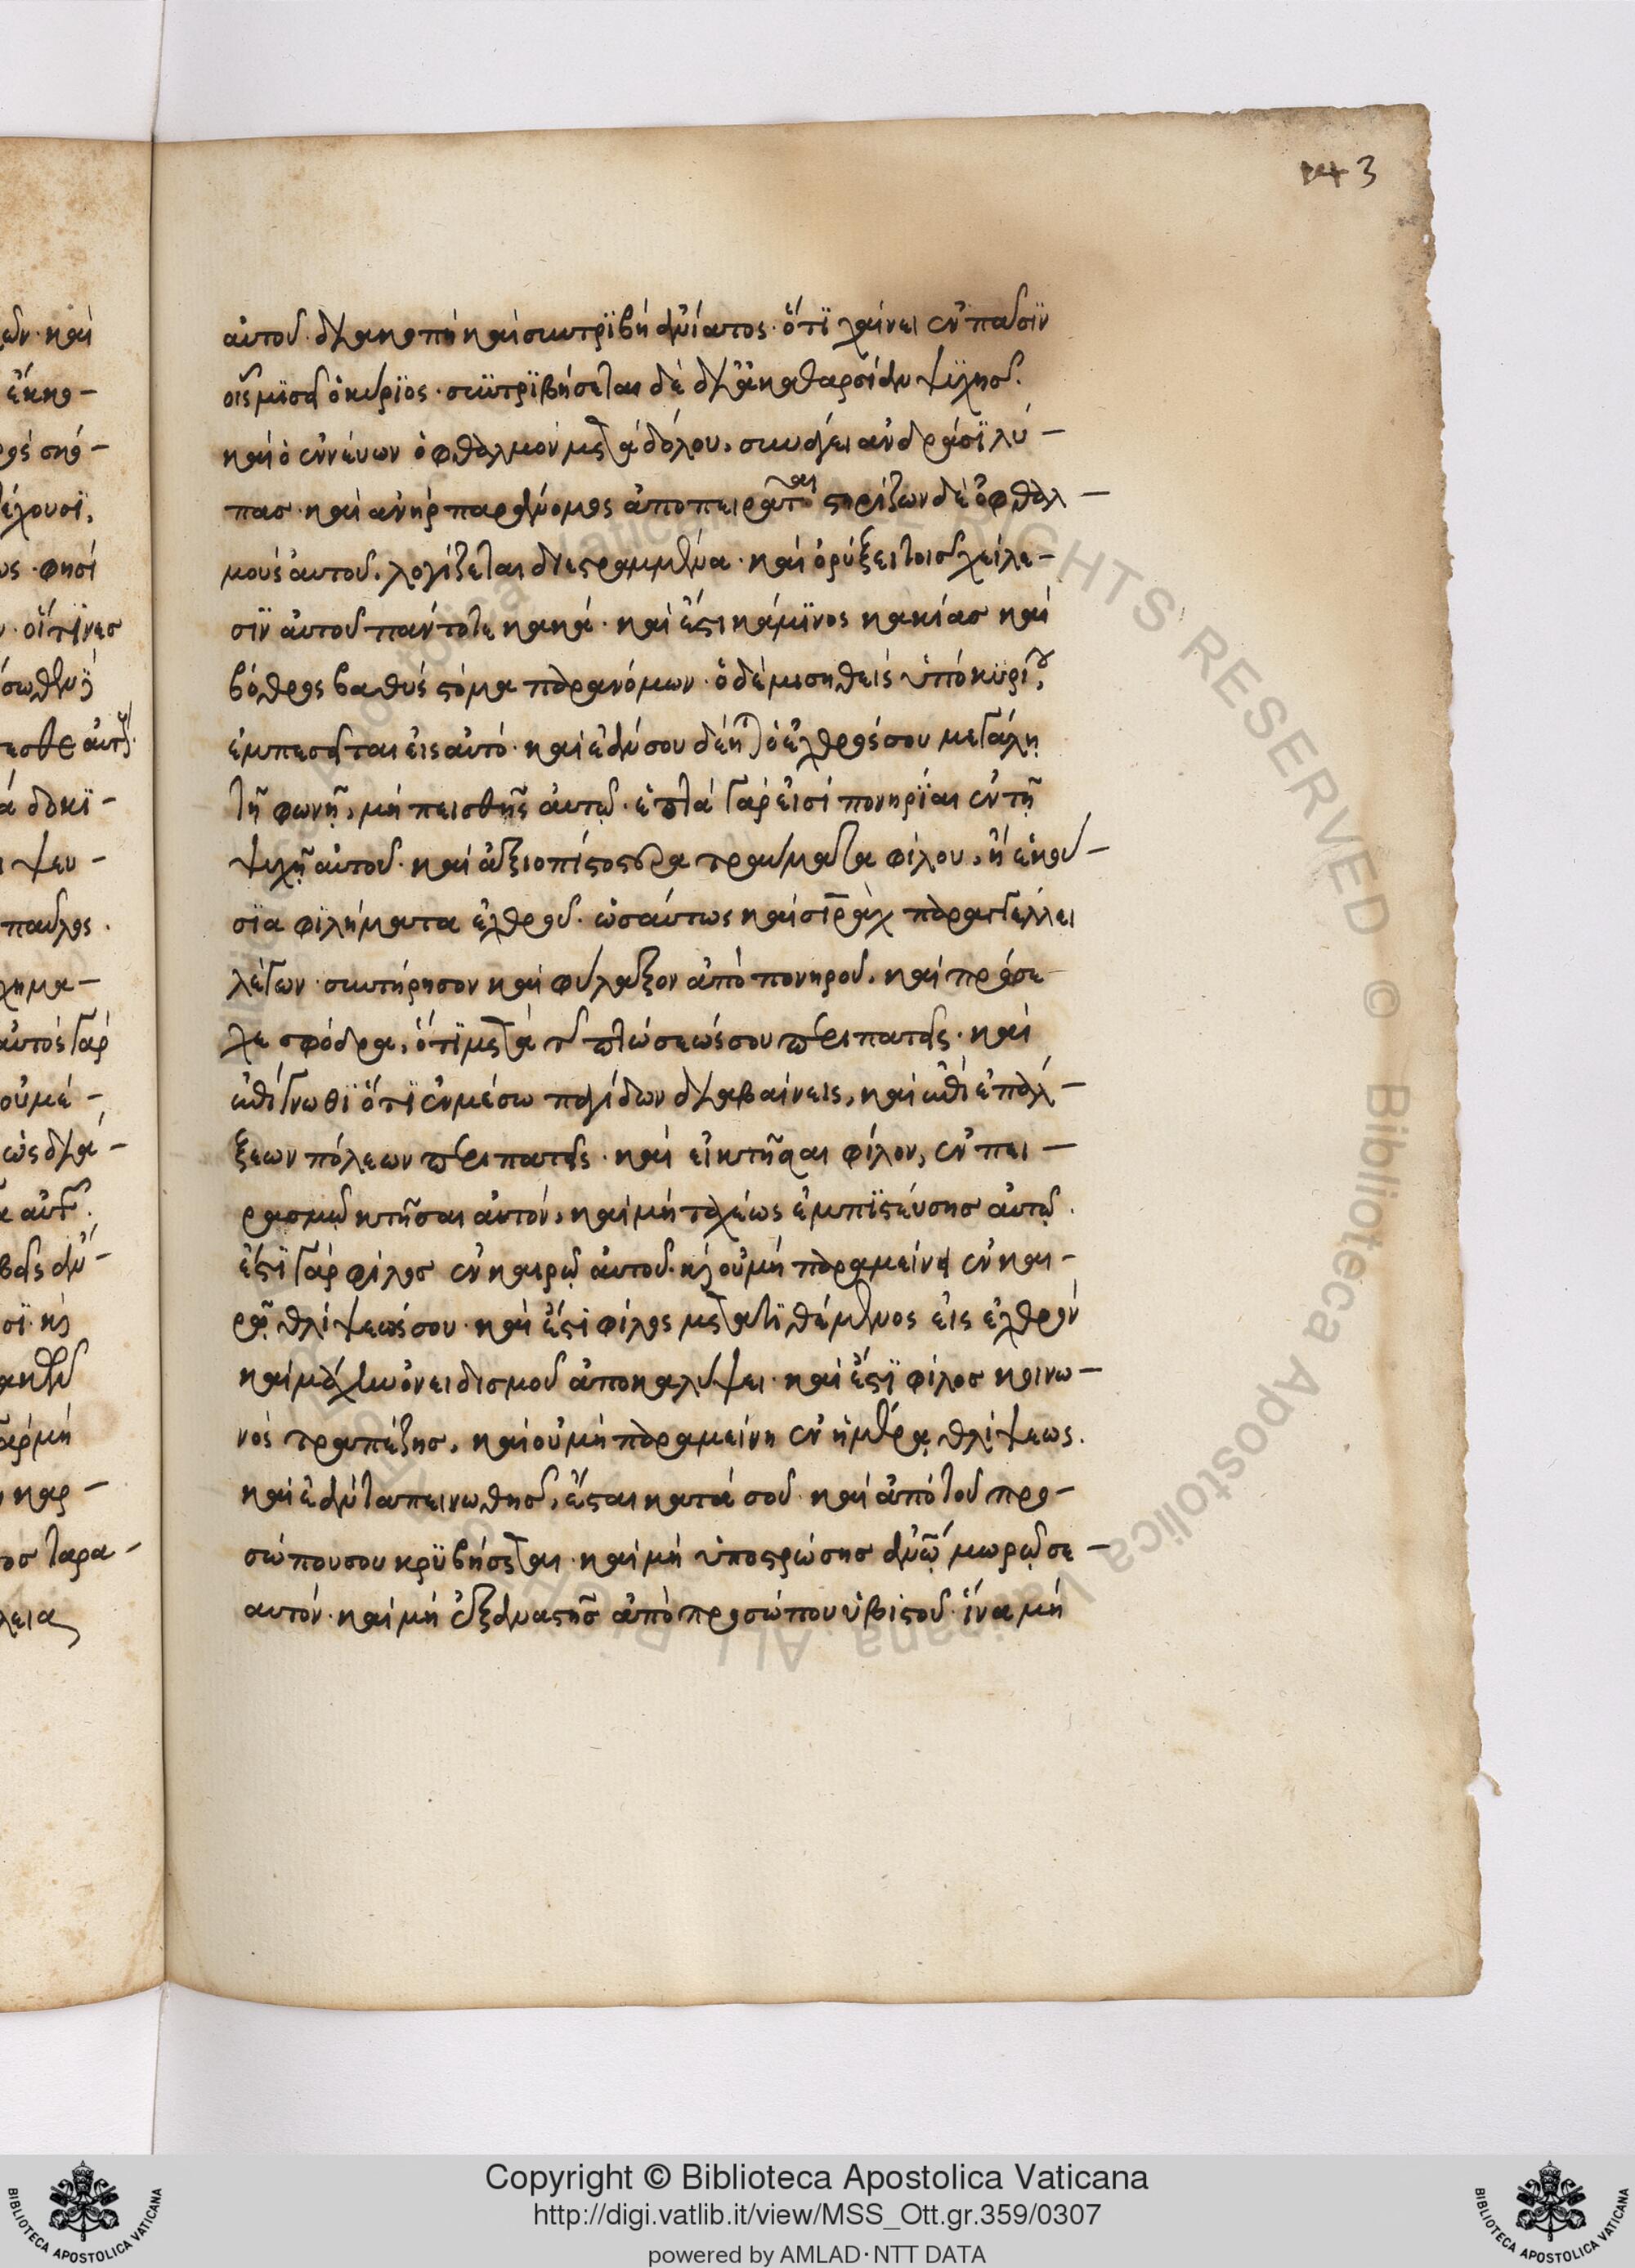 143
αὐτοῦ διακοπὴ καὶ συντρϊβὴ ἀνίατος· ὅτϊ χαίρει ἐν πᾶσϊν
οἷς μϊσεῖ ὁ κύρϊος· συντρϊβήσεται δὲ δι' ἀκαθαρσίαν ψυχῆς·
καὶ ὁ ἐννεύων ὀφθαλμὸν μετὰ δόλου, συνάγει ἀνδράσϊ λύ-
πας· καὶ ἀνὴρ παράνομος ἀποπειρᾶται στηρίζων δὲ ὀφθαλ-
μοὺς αὐτοῦ, λογίζεται διεστραμμένα· καὶ ὀρύξει τοῖς χείλε-
σϊν αὐτοῦ πάντοτε κακά· καὶ ἔστι κάμϊνος κακίας καὶ
βόθρος βαθὺς στόμα παρανόμων· ὁ δὲ μισηθεὶς ὑπὸ κυρίου,
ἐμπεσεῖται εἰς αὐτό· καὶ ἐάν σου δέηται ὁ ἐχθρός σου μεγάλῃ
τῇ φωνῇ, μὴ πεισθῇς αὐτῷ· ἑπτὰ γάρ εἰσϊ πονηρίαι ἐν τῇ
ψυχῇ αὐτοῦ· καὶ ἀξιοπίστοτερα τραύματα φίλου, ἢ ἑκού-
σϊα φϊλήματα ἐχθροῦ· ὡσαύτως καὶ σιρὰχ παραγγέλλει
λέγων· συντήρησον καὶ φύλαξον ἀπὸ πονηροῦ, καὶ πρόσε-
χε σφόδρα, ὅτϊ μετὰ τῆς πτώσεώς σου περιπατεῖς· καὶ
ἐπίγνωθϊ ὅτϊ ἐν μέσῳ παγίδων διαβαίνεις, καὶ ἐπὶ ἐπάλ-
ξεων πόλεων περιπατεῖς· καὶ εἰ κτᾶσαι φίλον, ἐν πει-
ρασμῷ κτῆσαι αὐτόν, καὶ μὴ ταχέως ἐμπϊστεύσῃς αὐτῷ·
ἔστϊ γὰρ φίλος ἐν καιρῷ αὐτοῦ· κ(αὶ) οὐ μὴ παραμείνῃ ἐν και-
ρῷ θλίψεώς σου· καὶ ἔστϊ φίλος μετατϊθέμενος εἰς ἐχθρὸν
καὶ μάχην ὀνειδισμοῦ ἀποκαλύψει· καὶ ἔστϊ φίλος κοινω-
νὸς τραπέζης, καὶ οὐ μὴ παραμείνῃ ἐν ἡμέρᾳ θλίψεως·
καὶ ἐὰν ταπεινωθῇς, ἔσται κατά σοῦ· καὶ ἀπὸ τοῦ προ-
σώπου σου κρϋβήσεται· καὶ μὴ ὑποστρώσῃς ἀνῷ μωρῷ σε-
αυτόν· καὶ μὴ ἐξαναστῇς ἀπὸ προσώπου ὑβϊστοῦ· ἵνα μὴ
Copyright © Biblioteca Apostolica Vaticana
http://digi.vatlib.it/view/MSS_Ott.gr.359/0307
powered by AMLAD·NTT DATA